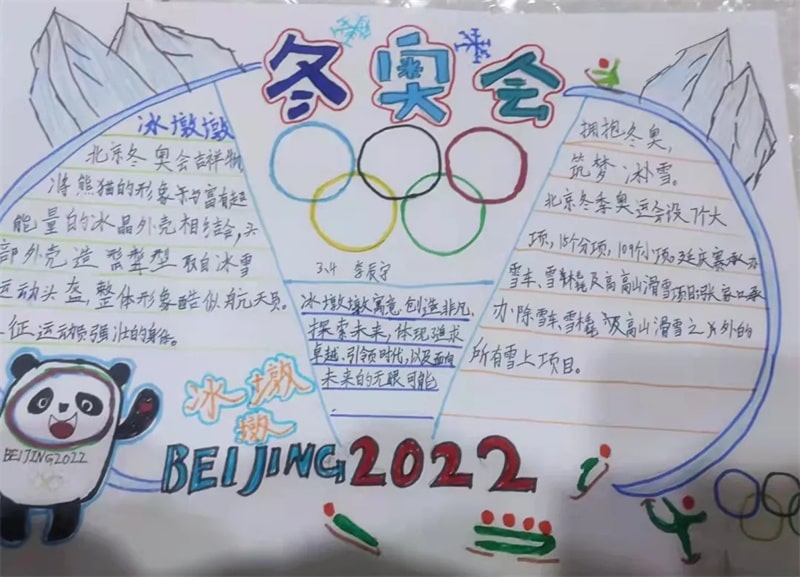 冬奥会
冰墩墩
北京冬奥会吉祥物,
将熊猫的形象与富有超
能量的冰晶外壳相结合,头
部外壳造 型取自冰雪
运动头盔,整体形象酷似航天员。
征运动 强壮的身体。
3.4
冰墩墩寓意创造非凡,
探索未来,体现追求
卓越,引领时代,以及面向
未来的无限可能
拥抱冬奥,
筑梦冰雪。
北京冬季奥运会设7个大
项,15个分项,109个小项。延庆赛 承办
雪车、雪橇及高高山滑雪项目张家口承
办除雪车、雪橇及高山滑雪之外的
所有雪上项目。
冰墩
墩
BEIJING2022
BEIJING2022